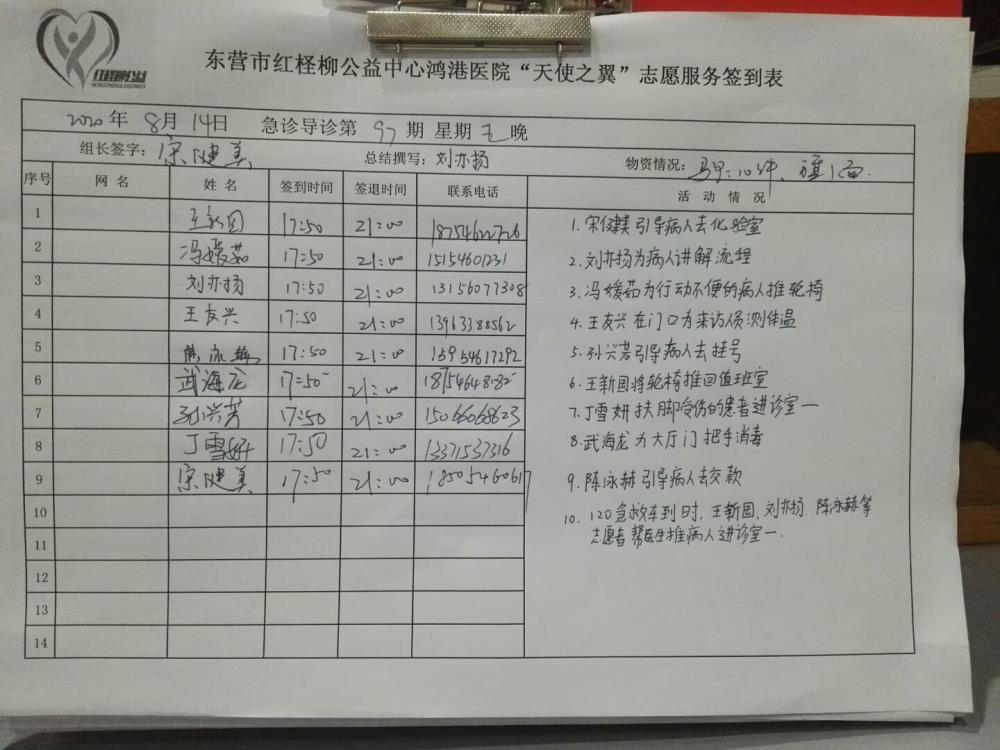 红柽柳公益
东营市红柽柳公益中心鸿港医院“天使之翼”志愿服务签到表
2020年 8月 14日 急诊导诊第 97 期 星期 五 晚
组长签字: 宋健美 总结撰写: 刘亦扬 物资情况: 马甲:10件、旗1面.
序号 网名 姓名 签到时间 签退时间 联系电话 活动情况
1 王新国 17:50 21:00 18754622726
2 冯媛茹 17:50 21:00 15154601231
3 刘亦扬 17:50 21:00 13156077308
4 王友兴 17:50 21:00 13963388562
5 陈永赫 17:50 21:00 15954617292
6 武海龙 17:50 21:00
7 孙兴芳 17:50 21:00 15066068623
8 丁雪妍 17:50 21:00 13371537316
9 宋健美 17:50 21:00 18505460617
10
11
12
13
14
1.宋健美引导病人去化验室
2.刘亦扬为病人讲解流程
3.冯媛茹为行动不便的病人推轮椅
4.王友兴在门口为来访人员测体温
5.孙兴芳引导病人去挂号
6.王新国将轮椅推回值班室
7.丁雪妍扶脚受伤的患者进诊室一
8.武海龙为大厅门把手消毒
9.陈永赫引导病人去交款
10.120急救车到时,王新国、刘亦扬、陈永赫等
志愿者帮医生推病人进诊室一.